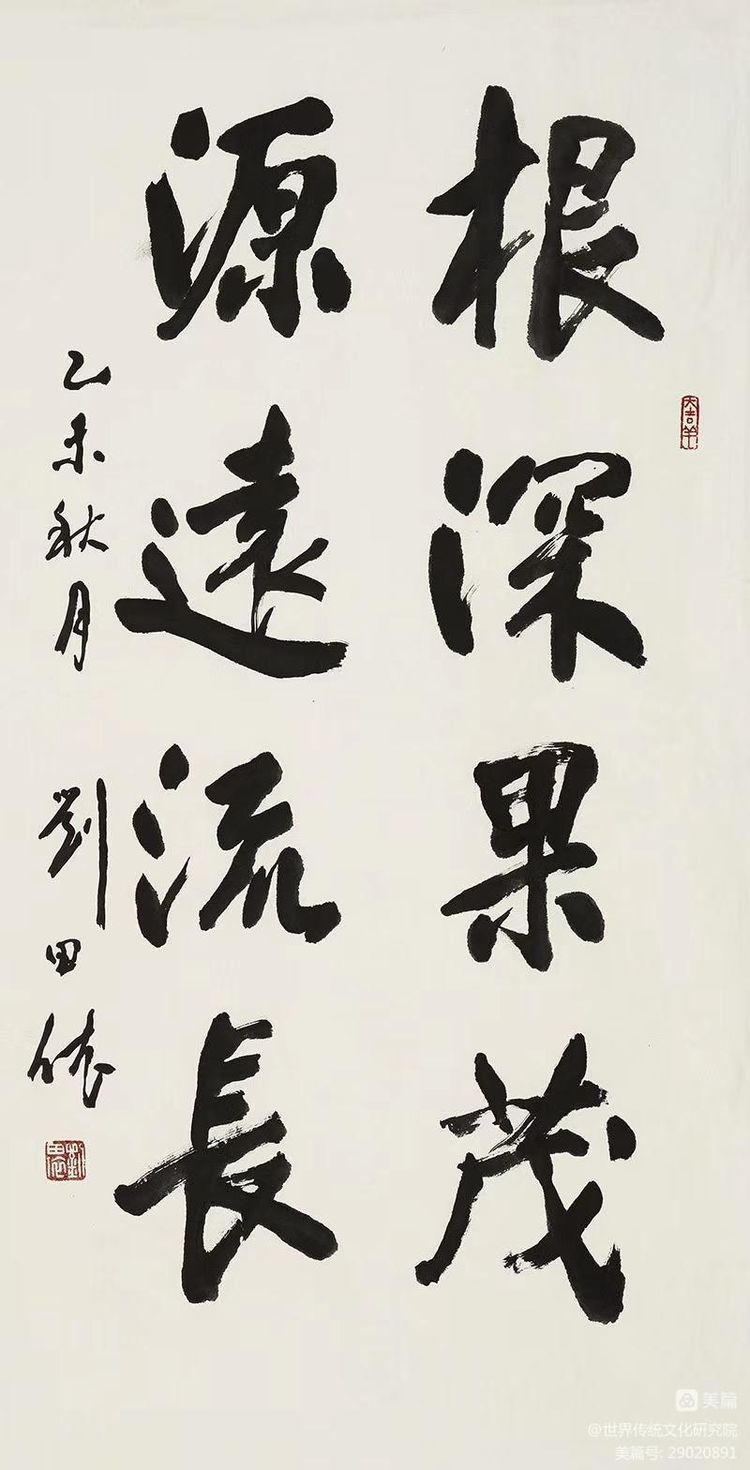 根深果茂
源遠流長
乙未秋月
劉田依
大吉羊
美篇
@世界传统文化研究院
美篇号: 29020891